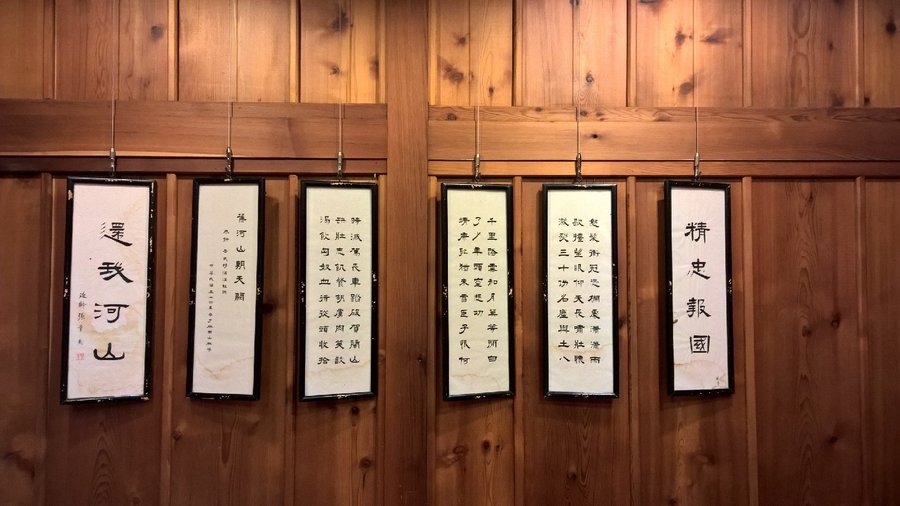 精忠報國
怒髮衝冠憑欄處瀟瀟雨
歇擡望眼仰天長嘯壯懷
激烈三十功名塵與土八
千里路雲和月莫等閒白
了少年頭空悲切
靖康恥猶未雪臣子恨何
時滅駕長車踏破賀蘭山
缺壯志飢餐胡虜肉笑談
渴飲匈奴血待從頭收拾
舊河山朝天闕
還我河山